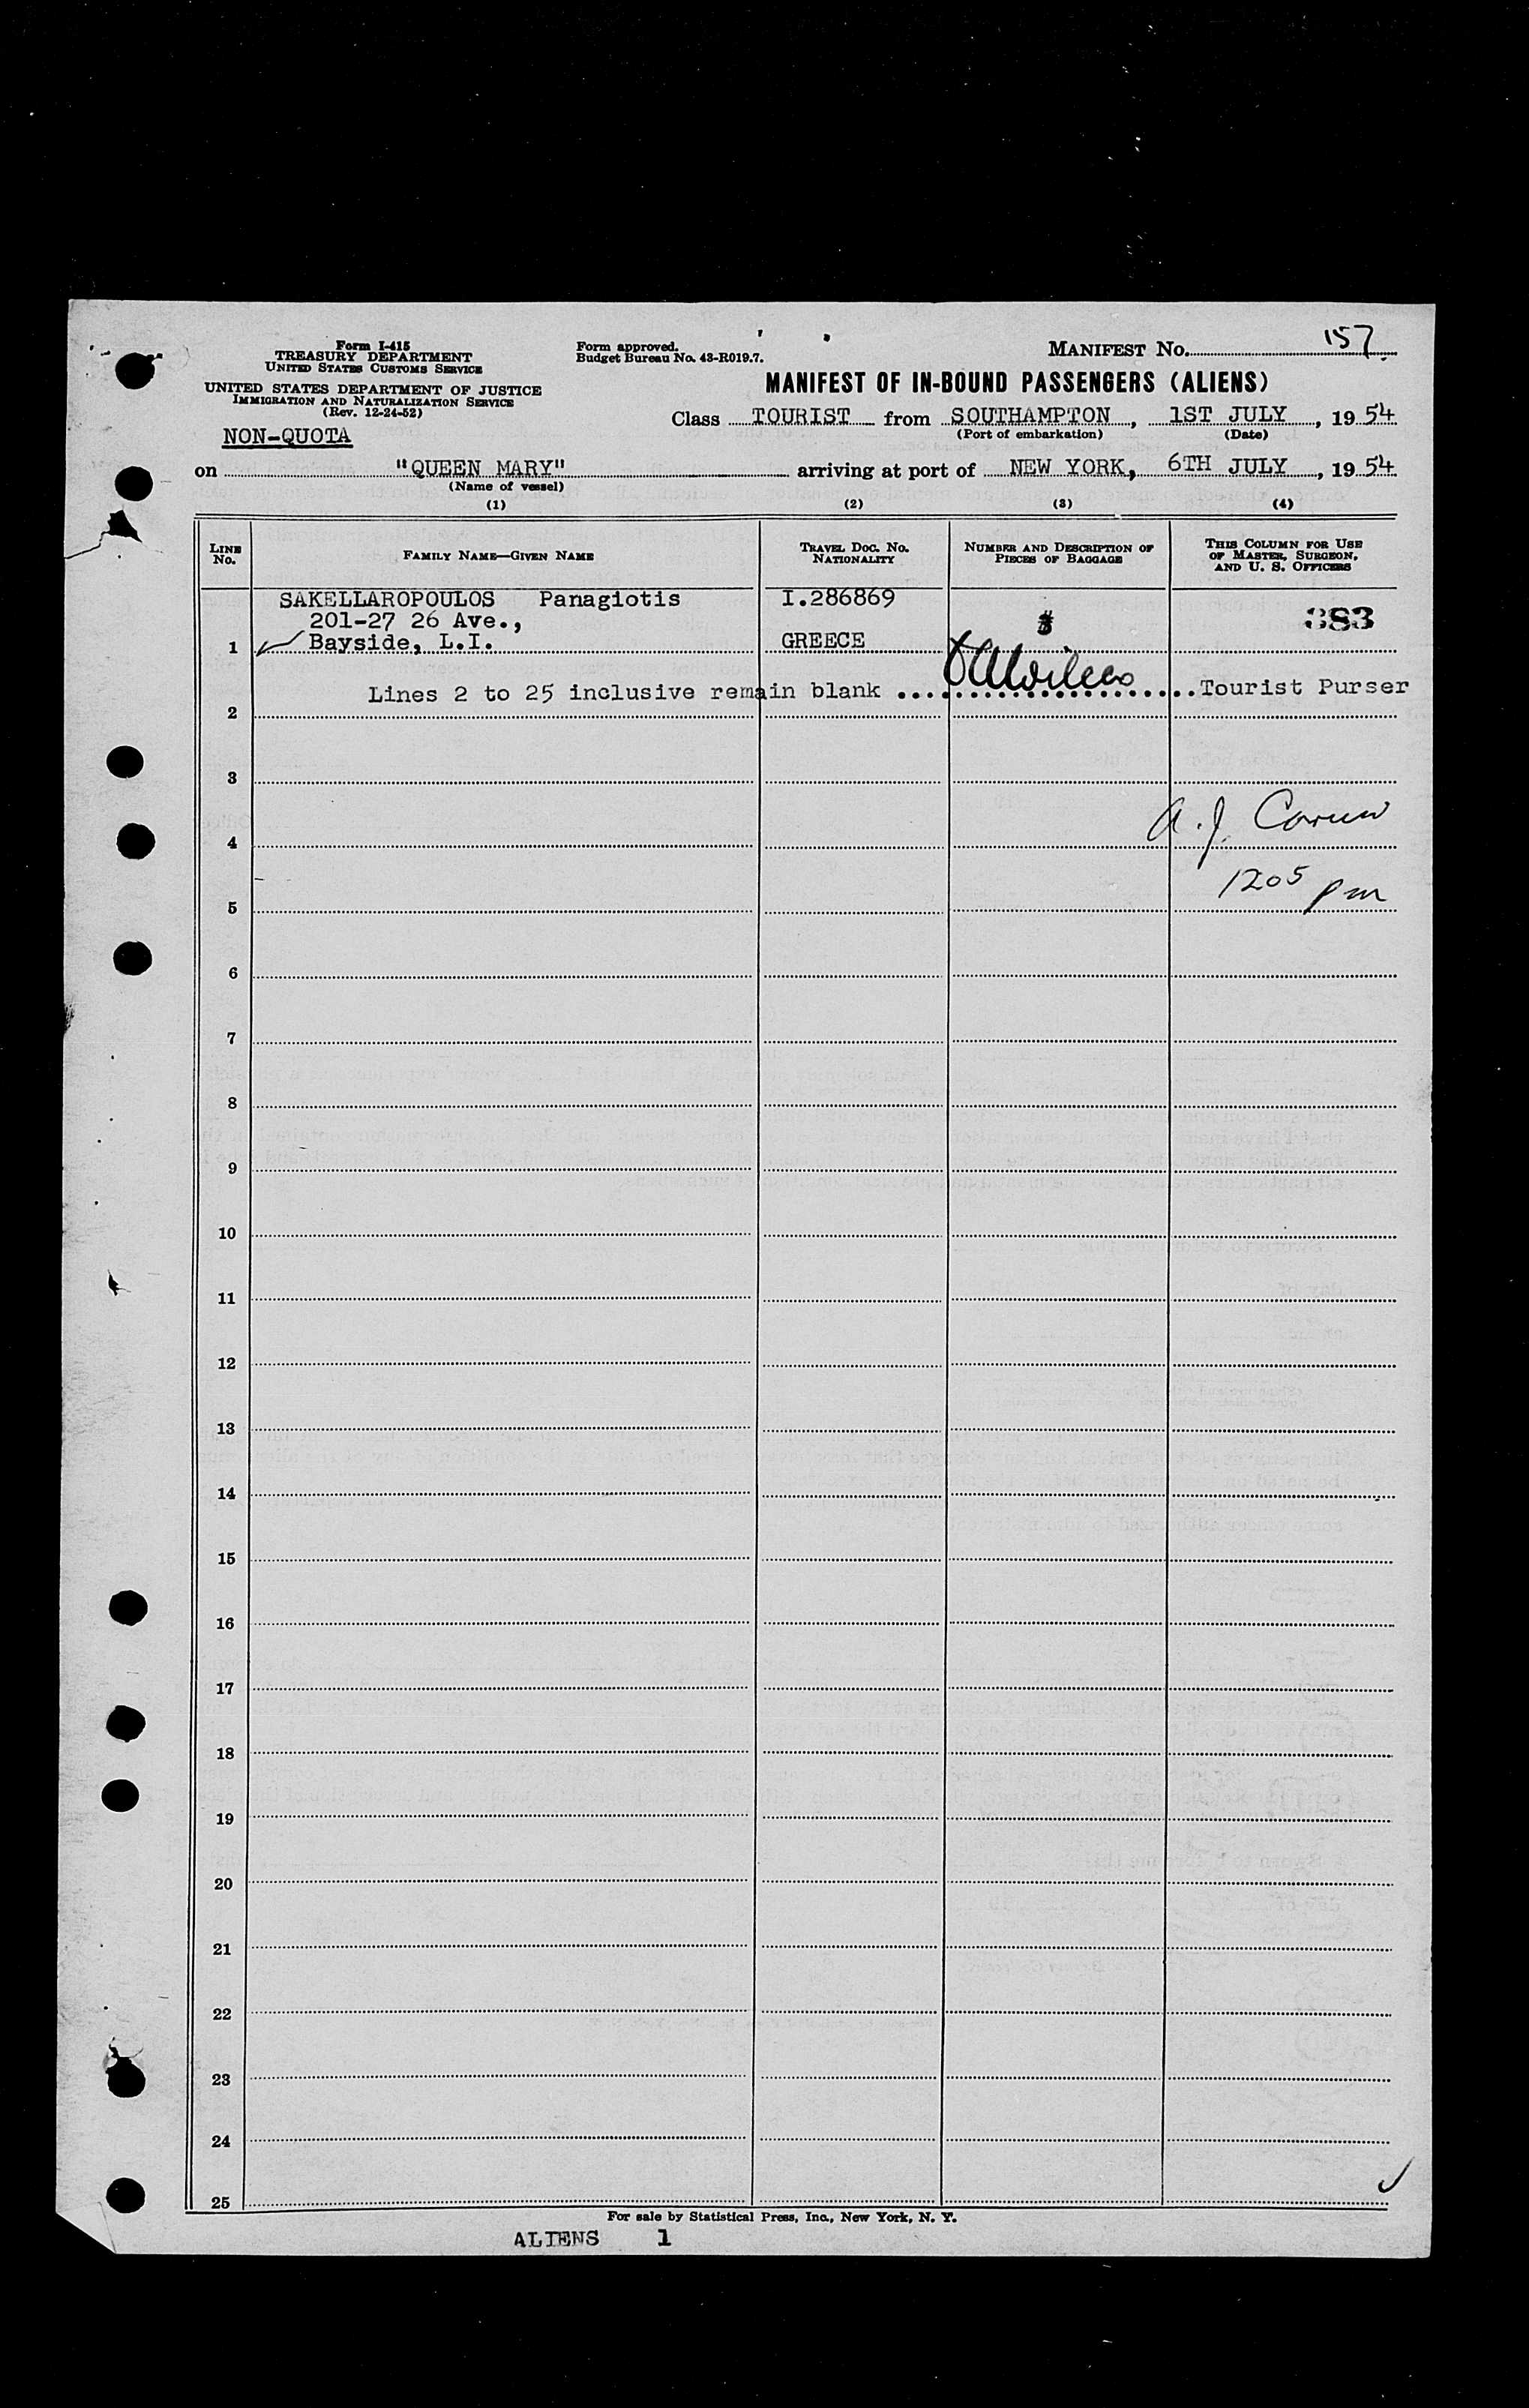 Form I-415
TREASURY DEPARTMENT
UNITED STATES CUSTOMS SERVICE
UNITED STATES DEPARTMENT OF JUSTICE
IMMIGRATION AND NATURALIZATION SERVICE
(Rev. 12-24-52)
NON-QUOTA
Form approved.
Budget Bureau No. 43-R019.7.
MANIFEST No. 157
MANIFEST OF IN-BOUND PASSENGERS (ALIENS)
Class TOURIST from SOUTHAMPTON, 1ST JULY, 1954
(Port of embarkation) (Date)
on "QUEEN MARY" arriving at port of NEW YORK, 6TH JULY, 1954
(Name of vessel)
(1) (2) (3) (4)
LINE No. FAMILY NAME—GIVEN NAME TRAVEL DOC. No. NATIONALITY NUMBER AND DESCRIPTION OF PIECES OF BAGGAGE THIS COLUMN FOR USE OF MASTER, SURGEON, AND U. S. OFFICERS
SAKELLAROPOULOS Panagiotis I.286869
201-27 26 Ave., 383
1 Bayside, L.I. GREECE
Lines 2 to 25 inclusive remain blank ..................... Tourist Purser
2
3
A. J.
4
1205 pm
5
6
7
8
9
10
11
12
13
14
15
16
17
18
19
20
21
22
23
24
25
For sale by Statistical Press, Inc., New York, N. Y.
ALIENS 1